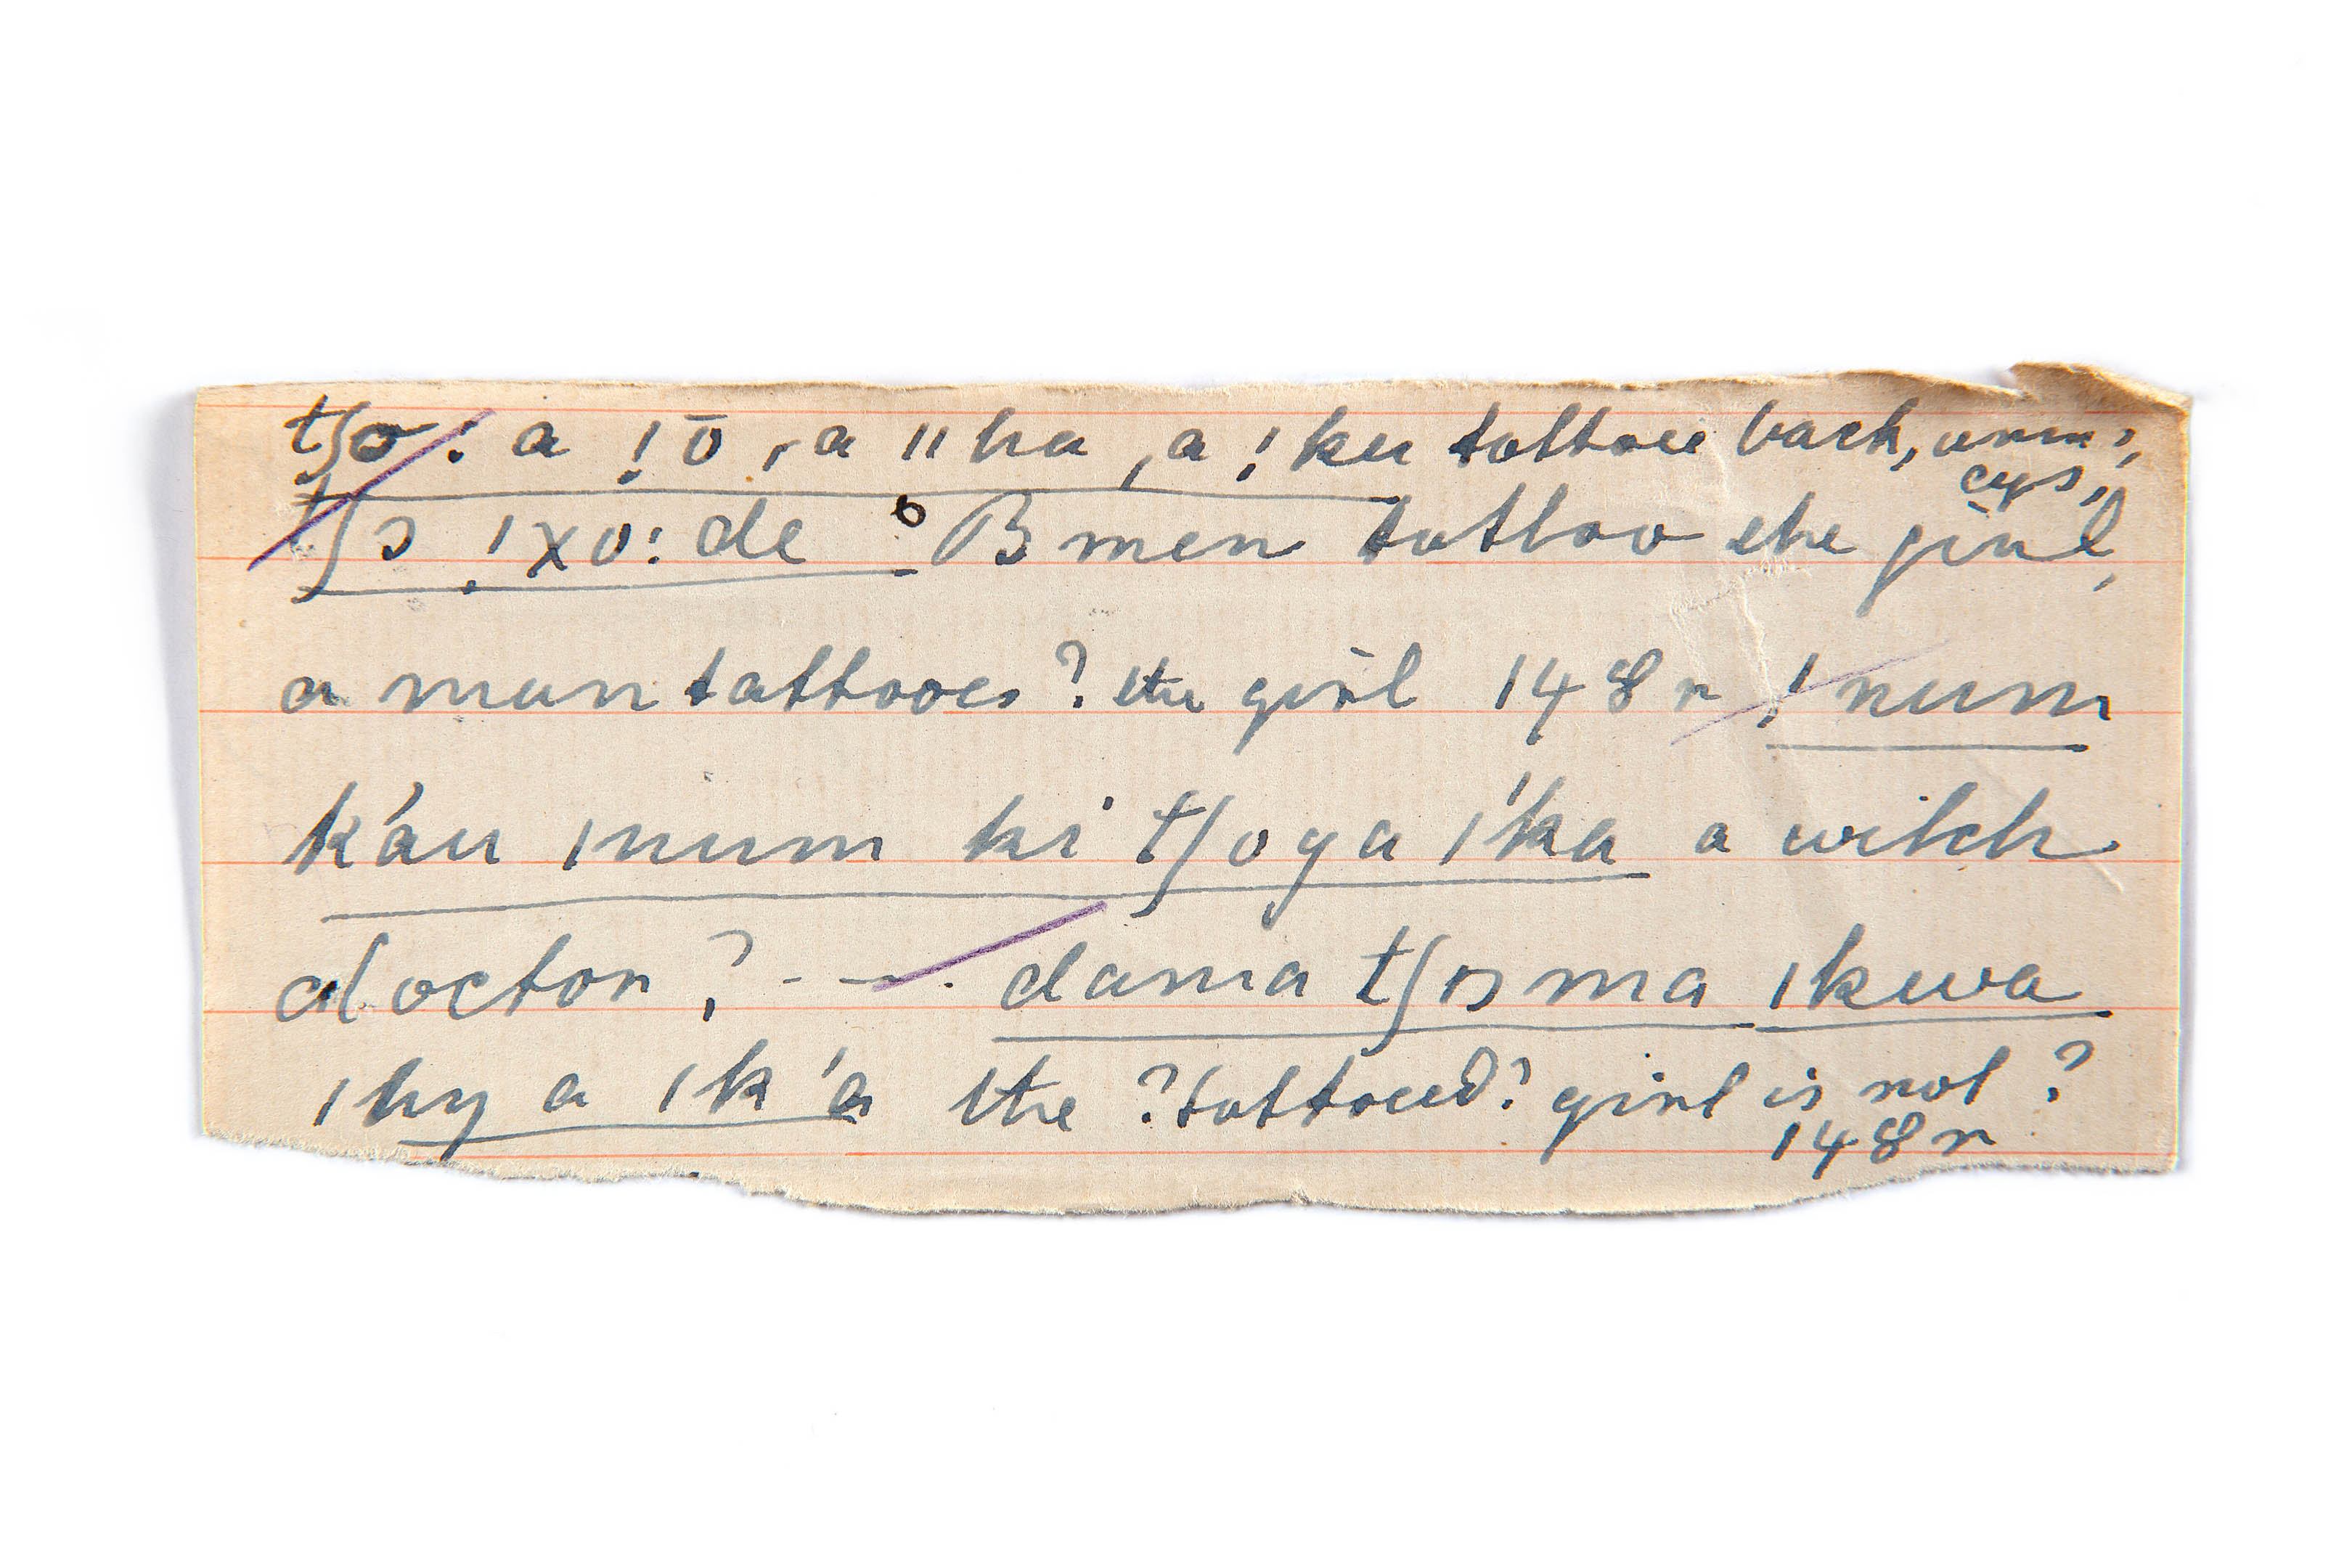 tʃo: a !ō, ǀa ǁha, a !ku tattooe back, arms,
eyes,
tʃɔ !xo: de B men tattoo the girl,
a man tattooes? the girl 148 r ! num
k'au ǀnum ki tʃoya ǀ'ka a witch
doctor? - - . dama tʃɔ ma ǀkwa
ǀhy a ǀk'a the ?tattoeed? girl is not ?
148 r